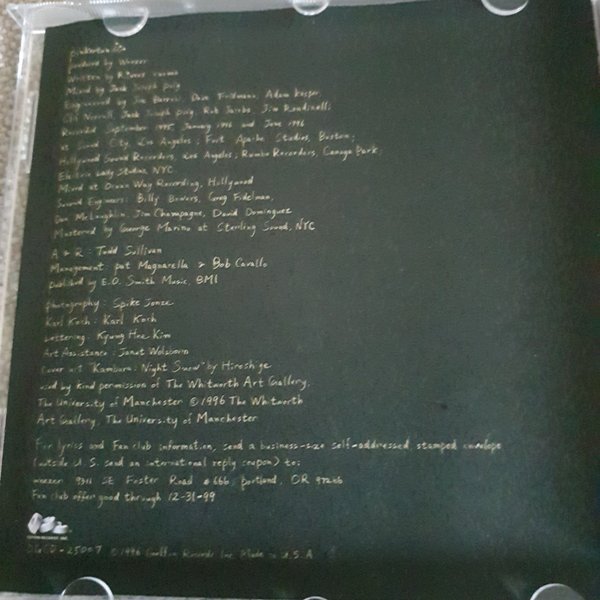 pinkerton
produced by Weezer
Written by Rivers Cuomo
Mixed by Jack Joseph Puig
Engineered by Joe Barresi, Dave Fridmann, Adam Kasper,
Cliff Norrell, Jack Joseph Puig, Rob Jacobs, Jim Rondinelli;
Recorded September 1995, January 1996 and June 1996
at Sound City, Los Angeles; Fort Apache Studios, Boston;
Hollywood Sound Recorders, Los Angeles; Rumbo Recorders, Canoga Park;
Electric Lady Studios, NYC.
Mixed at Ocean Way Recording, Hollywood
Sound Engineers: Billy Bowers, Greg Fidelman,
Dan McLaughlin, Jim Champagne, David Dominguez
Mastered by George Marino at Sterling Sound, NYC
A & R: Todd Sullivan
Management: pat Magnarella & Bob Cavallo
published by E.O. Smith Music, BMI
photography: Spike Jonze
Karl Koch: Karl Koch
Lettering: Kyung Hee Kim
Art Assistance: Janet Wolsborn
cover art "Kambara: Night Snow" by Hiroshige
used by kind permission of The Whitworth Art Gallery,
The University of Manchester ©1996 The Whitworth
Art Gallery, The University of Manchester
For lyrics and Fan club information, send a business-size self-addressed, stamped envelope
(outside U.S. send an international reply coupon) to:
weezer 9311 SE Foster Road #666 portland, OR 97266
Fan club offer good through 12-31-99
DGCD-25007 ©1996 Geffen Records Inc. Made in U.S.A